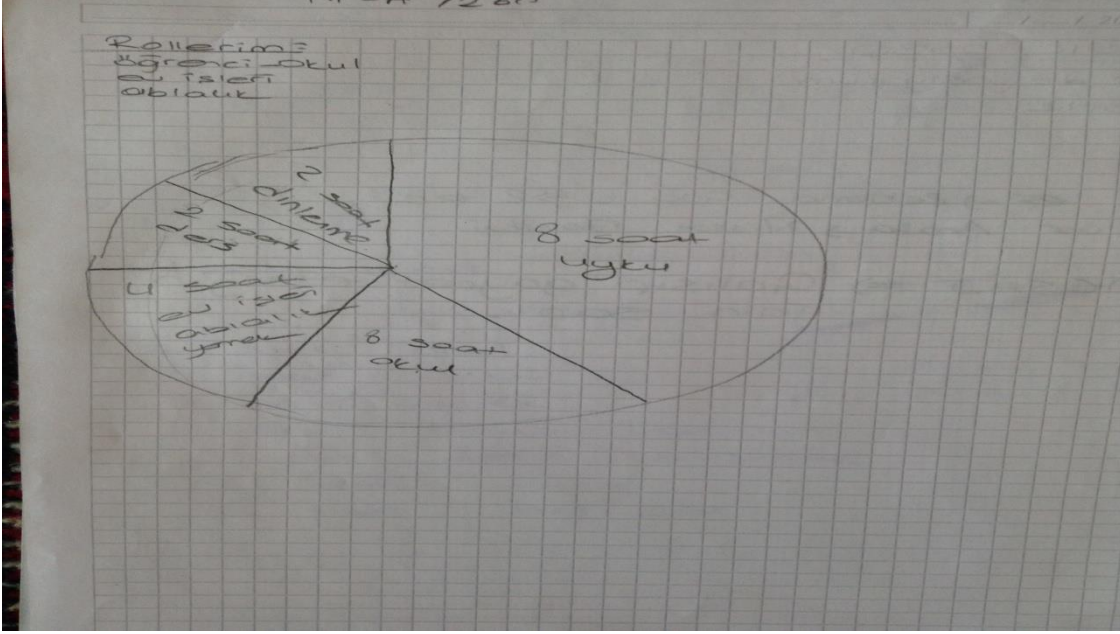 Rollerim=
öğrenci-okul
ev işleri
ablalık
2 saat
dinleme
2 saat
ders
8 saat
uyku
4 saat
ev işleri
ablalık
yemek
8 saat
okul